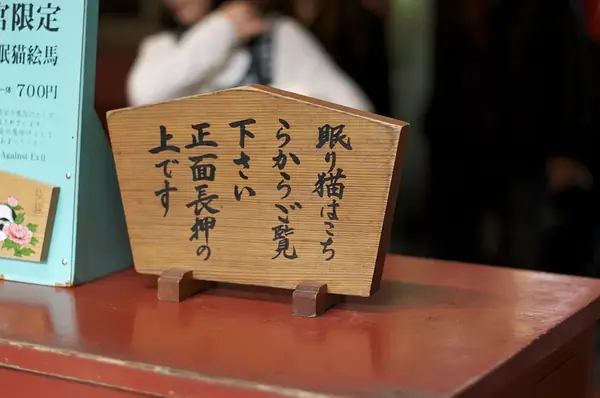 眠り猫はこち
らからご覧
下さい
正面長押の
上です
宮限定
眠猫絵馬
一体 700円
Against Evil